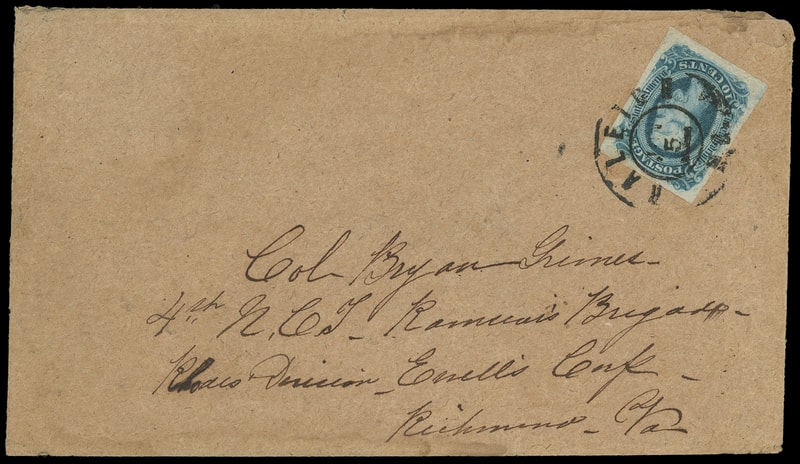 TEN CENTS
POSTAGE
RALEIGH
5
Col Bryan Grimes
4th N.C.T. Ramseur's Brigade
Rhodes Division Ewell's Corps
Richmond Va